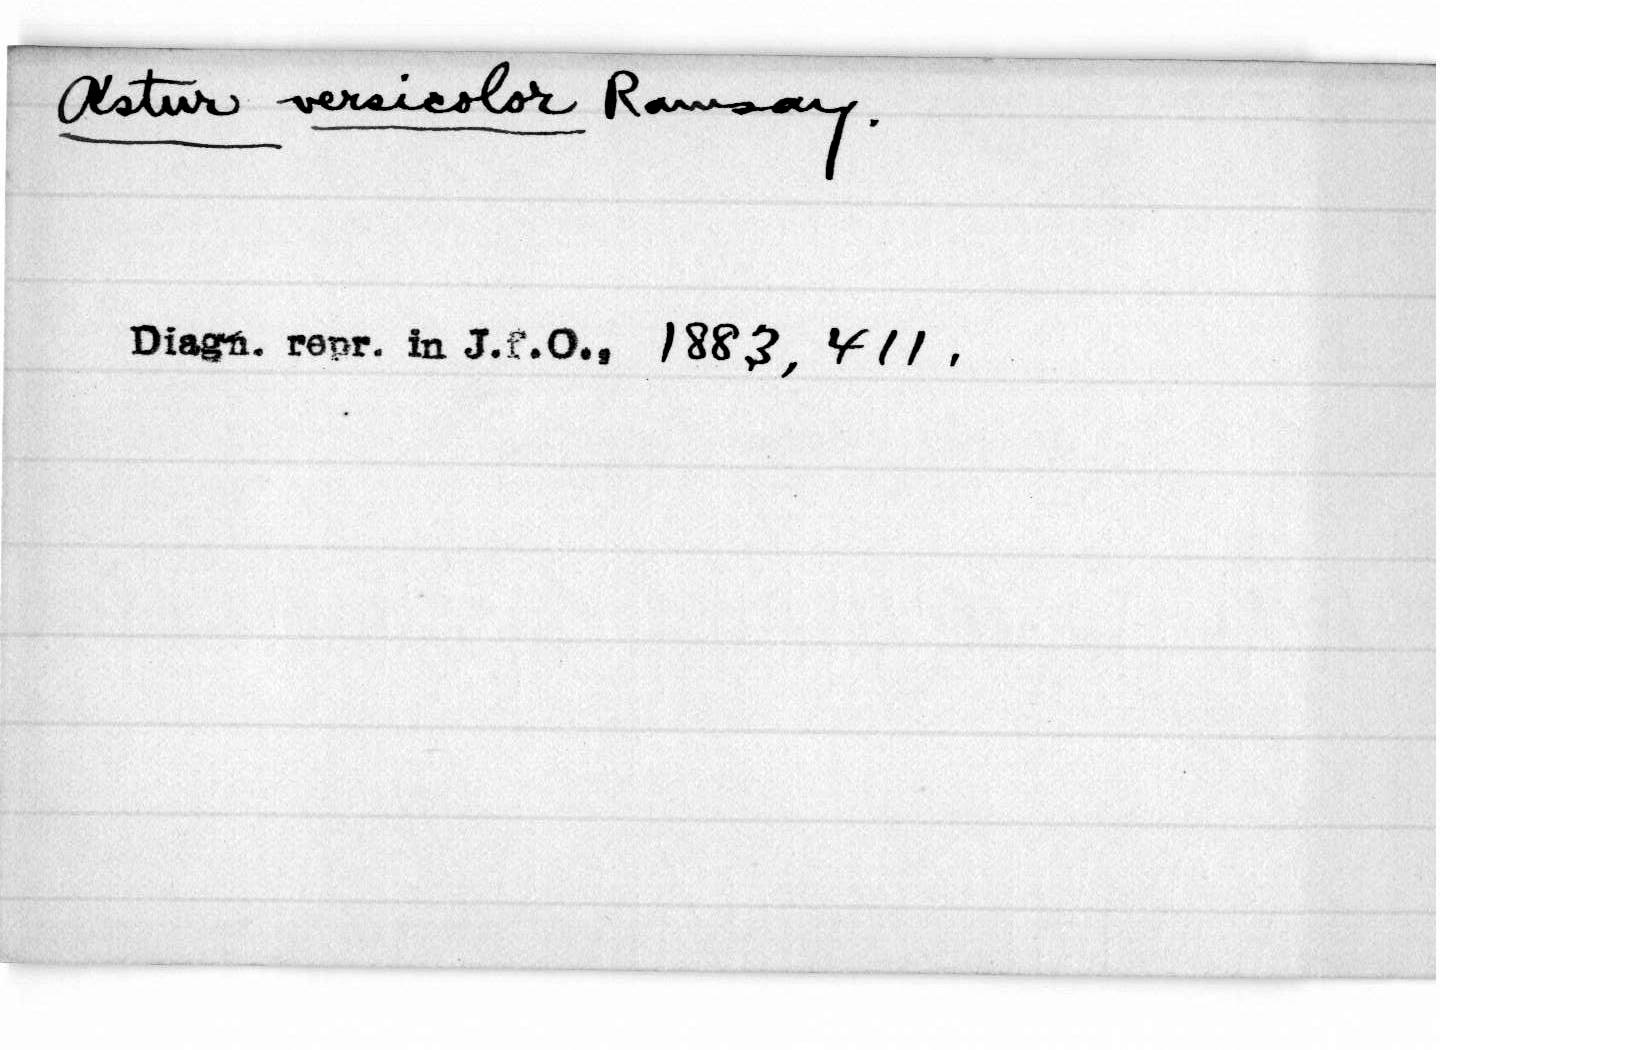 Astur versicolor Ramsay.
Diagn. repr. in J.f.O., 1883, 411.